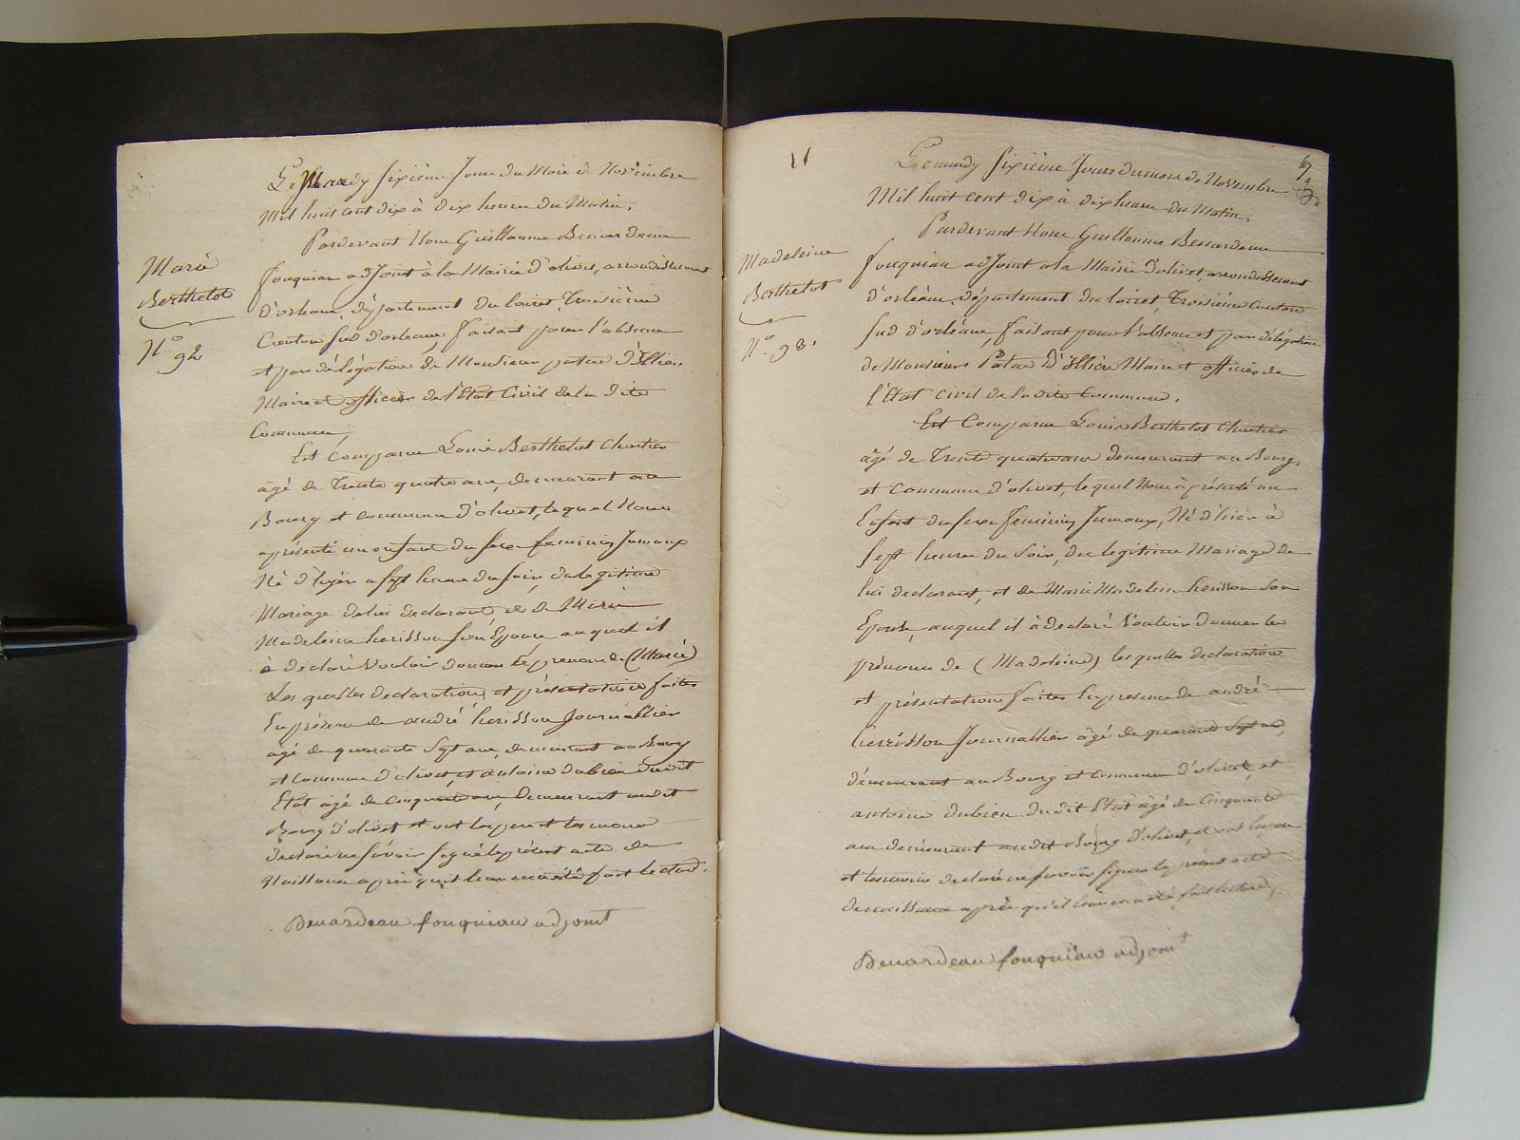 Le Mardy sixième Jour du Mois de Novembre
Mil huit cent dix à dix heures du Matin,
Pardevant Nous Guillaume Benardeau
fouquiau adjoint à la Mairie d'olivet, arrondissement
d'orleans, département du loiret, Troisième
Canton sud d'orleans, faisant pour l'absence
et par délégation de Monsieur patas d'Illiers
Maire et officier de l'État Civil de la dite
Commune,
Marie
Berthelot
N° 92
Est comparu Louis Berthelot Charretier
âgé de Trente quatre ans, demeurant au
Bourg et commune d'olivet, lequel Nous
a présenté un enfant du sexe feminin Jumaux
Né d'hyer a sept heures du soir, de légitime
Mariage de lui declarant, et de Marie
Madeleine herisson son Epouse auquel il
à declaré vouloir donner le prenom de (Marie)
Les quelles declaration et présentation faites
En présence de andré herisson Journallier
âgé de quarante Sept ans, demeurant au Bourg
et Commune d'olivet, et antoine dubien dudit
Etat âgé de cinquante ans, Demeurant audit
Bourg d'olivet et ont les pere et temoins
declaré ne savoir signé le présent acte de
Naissance après qu'il leur en a été fait lecture.
Benardeau fouquiau adjoint
11
Le mardy sixième Jour du mois de Novembre
Mil huit cent dix à dix heures du Matin,
Pardevant Nous Guillaume Benardeau
fouquiau adjoint a la Mairie d'olivet, arrondissement
d'orléans, département du loiret, Troisième Canton
Sud d'orléans, faisant pour l'absence et par délégation
de Monsieur Patas D'illiers Maire et officier de
l'État civil de la dite Commune.
Madeleine
Berthelot
N° 93.
Est Comparu Louis Berthelot Charretier
âgé de Trente quatre ans demeurant au Bourg
et Commune d'olivet, lequel Nous à présenté un
Enfant du sexe feminin Jumaux, Né d'hier à
Sept heures du Soir, de legitime Mariage de
lui declarant, et de Marie Madeleine herisson Son
Epouse, auquel il à declaré Vouloir donner le
prénoms de (Madeleine) les quelles declaration
et présentation faites En presence de andré
herisson Journallier âgé de quarante Sept ans,
demeurant au Bourg et Commune d'olivet, et
antoine dubien dudit Etat âgé de Cinquante
ans demeurant audit Bourg d'olivet, et ont les pere
et temoins declaré ne savoir signer le présent acte
de naissance après qu'il leur en a été fait lecture,
Benardeau fouquiau adjoint